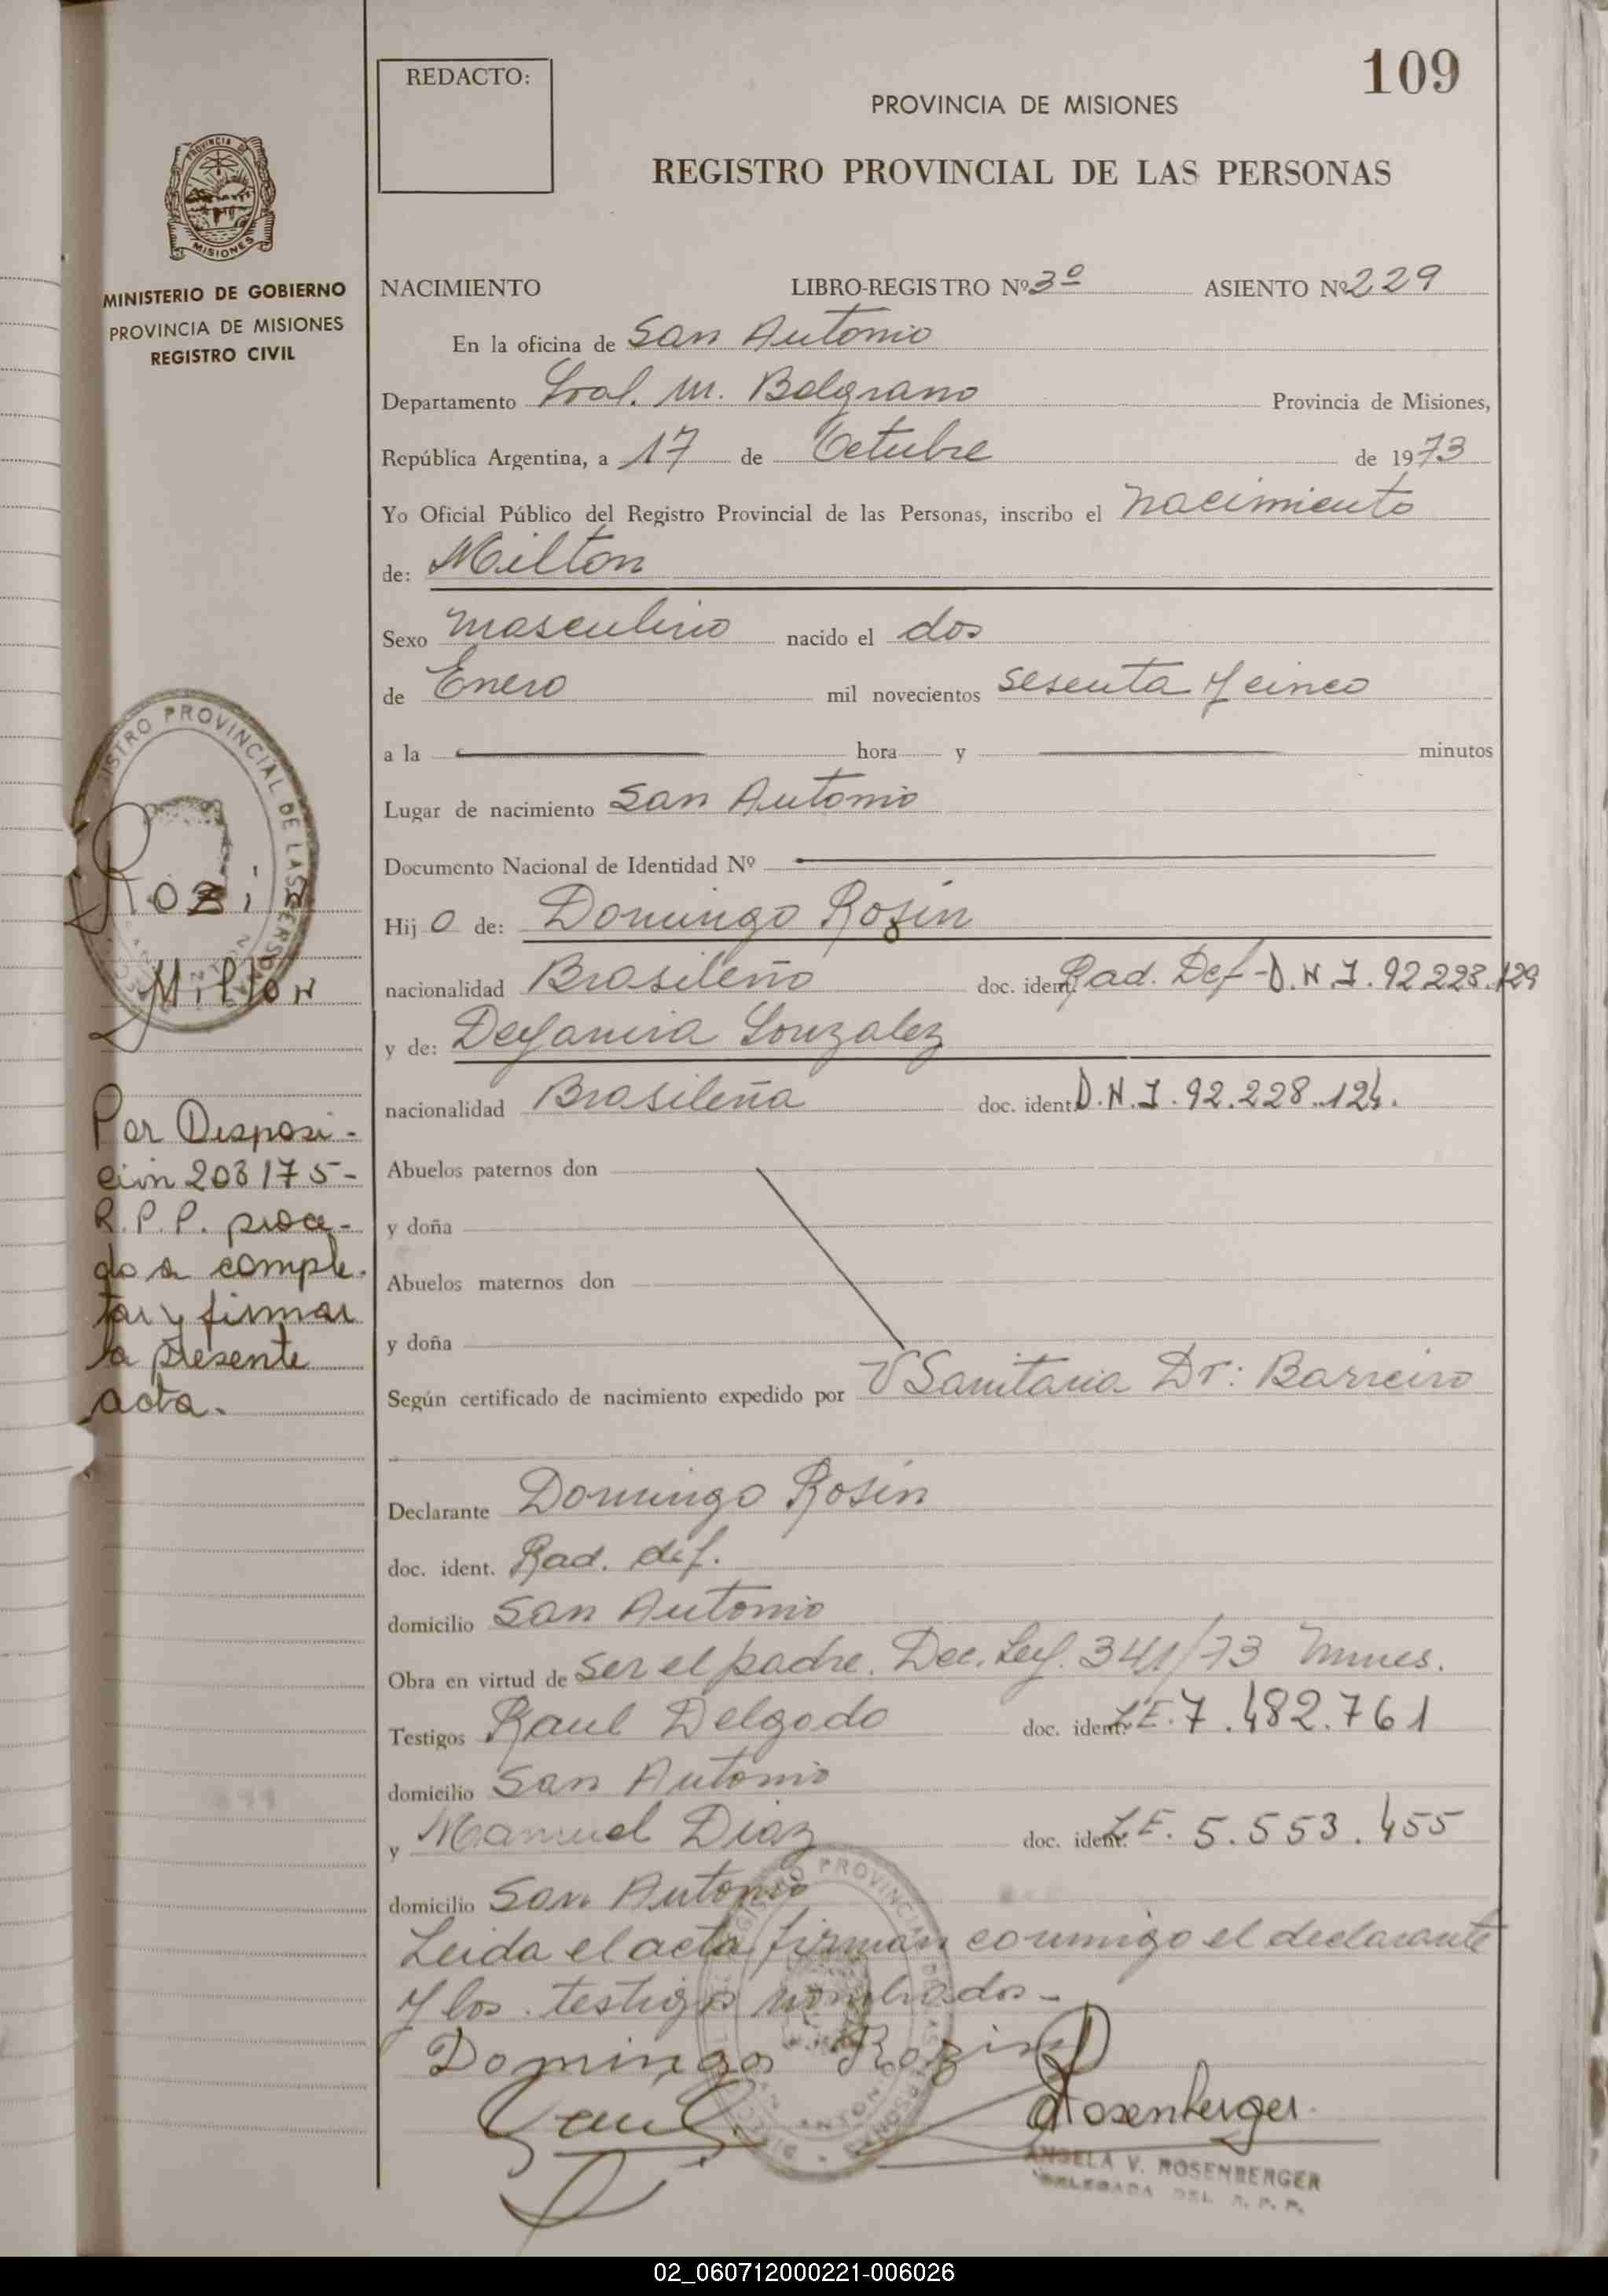 109
REDACTO:
PROVINCIA DE MISIONES
REGISTRO PROVINCIAL DE LAS PERSONAS
PROVINCIA DE
MISIONES
MINISTERIO DE GOBIERNO
PROVINCIA DE MISIONES
REGISTRO CIVIL
NACIMIENTO LIBRO-REGISTRO Nº 3º ASIENTO Nº 229
En la oficina de San Antonio
Departamento Gral. M. Belgrano Provincia de Misiones,
República Argentina, a 17 de Octubre de 1973
Yo Oficial Público del Registro Provincial de las Personas, inscribo el nacimiento
de: Milton
Sexo masculino nacido el dos
de Enero mil novecientos sesenta y cinco
a la hora y minutos
Lugar de nacimiento San Antonio
Documento Nacional de Identidad Nº
Hij o de: Domingo Rozin
nacionalidad Brasileño doc. ident. Rad. Def - D.N.I. 92.228.129
y de: Deyanira Gonzalez
nacionalidad Brasileña doc. ident. D.N.I. 92.228.124.
Abuelos paternos don
y doña
Abuelos maternos don
y doña
Según certificado de nacimiento expedido por V Sanitaria Dr: Barreiro
Declarante Domingo Rosin
doc. ident. Rad. def.
domicilio San Antonio
Obra en virtud de ser el padre. Dec. Ley. 341/73 Mnes.
Testigos Raul Delgado doc. ident. L.E. 7.482.761
domicilio San Antonio
y Manuel Diaz doc. ident. L.E. 5.553.455
domicilio San Antonio
Leida el acta firman conmigo el declarante
y los testigos nombrados-
Domingo Rozin
Rosenberger
ANGELA V. ROSENBERGER
DELEGADA DEL R. P. P.
REGISTRO PROVINCIAL DE LAS PERSONAS
SAN ANTONIO
REGISTRO PROVINCIAL DE LAS PERSONAS
Rozin
Milton
Por Disposi-
cion 208/75-
R.P.P. proce-
do a comple-
tar y firmar
la presente
acta.
02_060712000221-006026